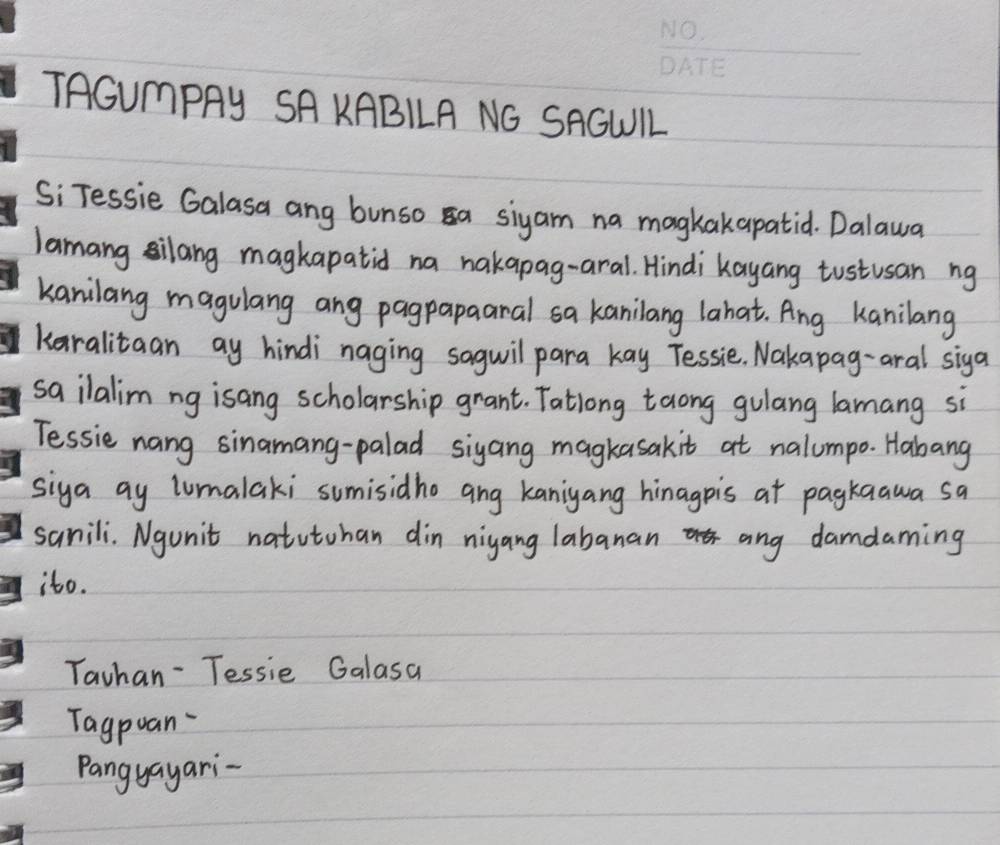 NO.
DATE
TAGUMPAY SA KABILA NG SAGWIL
Si Tessie Galasa ang bunso sa siyam na magkakapatid. Dalawa
lamang silang magkapatid na nakapag-aral. Hindi kayang tustusan ng
kanilang magulang ang pagpapaaral sa kanilang lahat. Ang kanilang
karalitaan ay hindi naging sagwil para kay Tessie. Nakapag-aral siya
sa ilalim ng isang scholarship grant. Tatlong taong gulang lamang si
Tessie nang sinamang-palad siyang magkasakit at nalumpo. Habang
siya ay lumalaki sumisidho ang kaniyang hinagpis at pagkaawa sa
sarili. Ngunit natutuhan din niyang labanan ang damdaming
ito.
Tauhan - Tessie Galasa
Tagpuan -
Pangyayari -